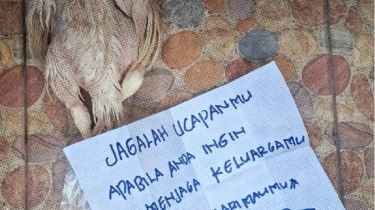 JAGALAH UCAPANMU
APABILA ANDA INGIN
MENJAGA KELUARGAMU